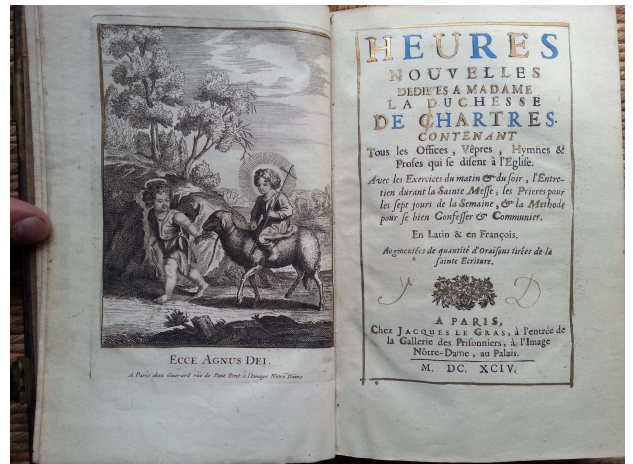 ECCE AGNUS DEI.
A Paris chez Guerard rüe du Petit Pont a l'Image Notre Dame
HEURES
NOUVELLES
DEDIE'ES A MADAME
LA DUCHESSE
DE CHARTRES.
CONTENANT
Tous les Offices, Vêpres, Hymnes &
Proses qui se disent à l'Eglise.
Avec les Exercices du matin & du soir, l'Entre-
tien durant la Sainte Messe; les Prieres pour
les sept jours de la Semaine, & la Methode
pour se bien Confesser & Communier.
En Latin & en François.
Augmentées de quantité d'Oraisons tirées de la
sainte Ecriture.
Y D
A PARIS,
Chez JACQUES LE GRAS, à l'entrée de
la Gallerie des Prisonniers, à l'Image
Nôtre-Dame, au Palais.
M. DC. XCIV.